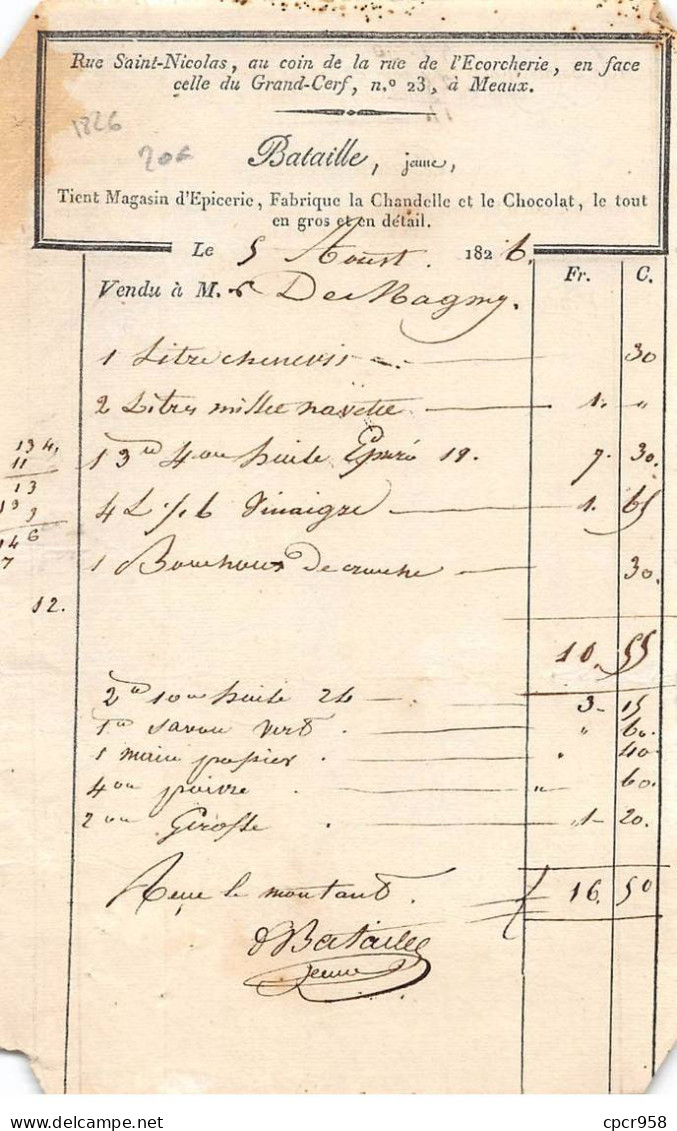 Rue Saint-Nicolas, au coin de la rue de l'Ecorcherie, en face
celle du Grand-Cerf, n.º 23, à Meaux.
1826
20€
Bataille, jeune,
Tient Magasin d'Epicerie, Fabrique la Chandelle et le Chocolat, le tout
en gros et en détail.
Le 5 Aoust. 1826.
Fr. C.
Vendu à M. De Magny.
1 Litre chenevis — 30
2 Litres millet navette — 1. "
1 3 4 on huile Epuré 19. 7. 30.
4 L 1/2 Vinaigre — 1. 65
1 Bouchon De cruche — 30.
134
11
13
13
3
146
7
12.
10. 55
2 10 on huile 26 — 3 - 15
savon vert — " 60.
1 main papier — " 40
4 on poivre — " 60.
2 on Girofle — 1 - 20.
Reçu le montant. 16. 50
Bataille
jeune
cpcr958